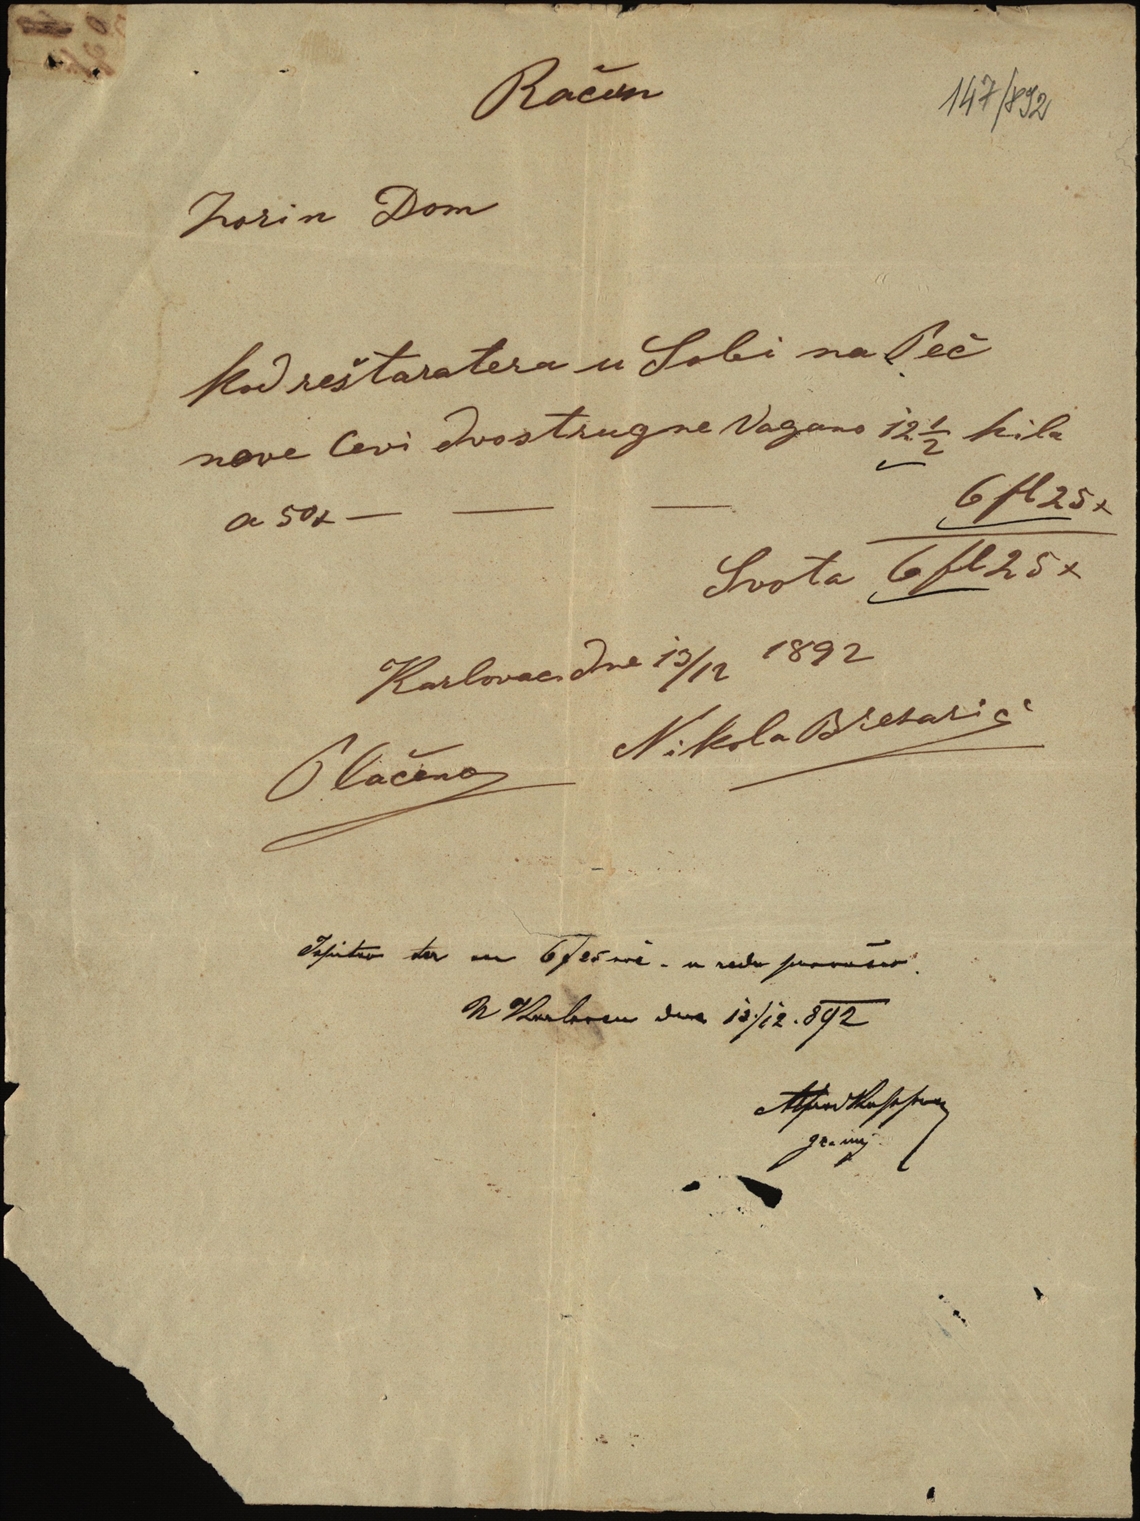 Račun
147/892
Zorin Dom
Kod reštaratera u Sobi na Peč
nove Cevi dvostrugne Vagano 12 1/2 kila
a 50x — — — 6 fl 25x
Svota 6 fl 25x
Karlovac dne 13/12 1892
Plačeno Nikola Bresarić
u redu
U Karlovcu dne 13/12.892